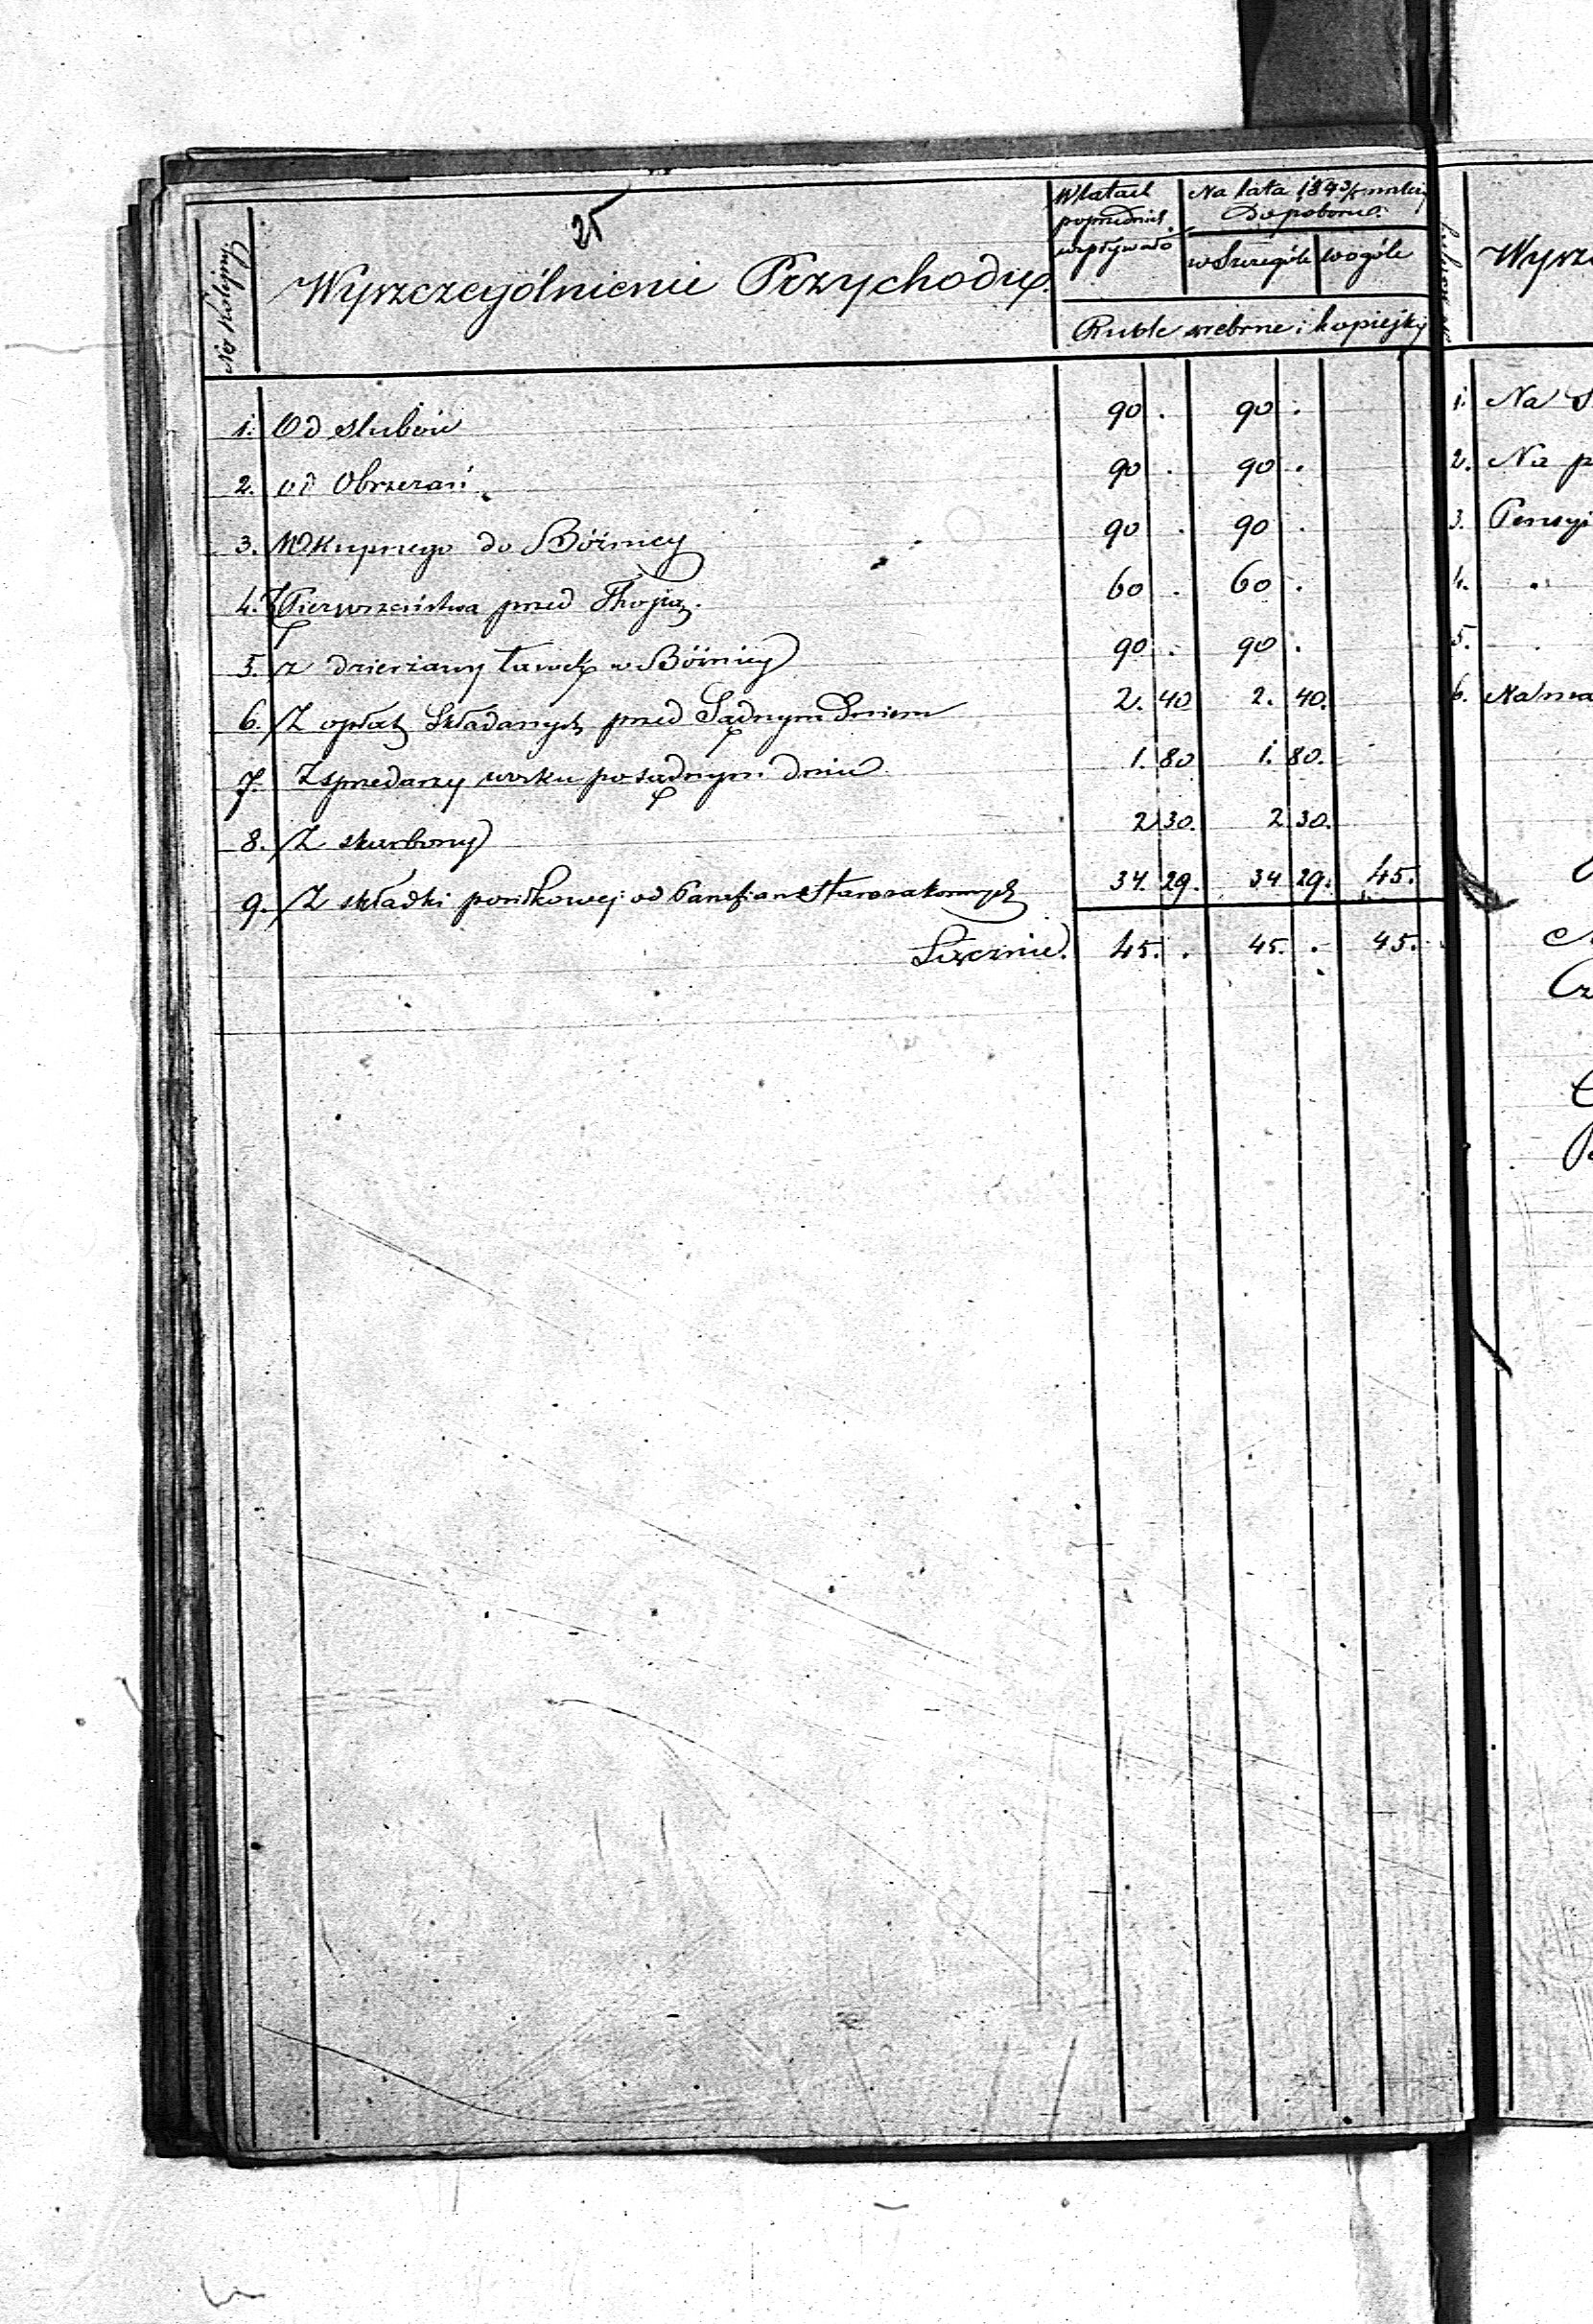 25
No Kolejny
Wyszczególnienie Przychodu.
W latach
poprzednich
wpływało
Na lata 184
Do poboru
w szczególe
wogóle
Ruble srebrne i kopiejki
1. Od slubów 90 . 90 .
2. od Obrzezań 90 . 90 .
3. Wkupnego do Bóżnicy 90 . 90 .
4. Pierwszeństwa przed Thorją. 60 . 60 .
5. z dzierżawy ławek w Bóżnicy 90 . 90 .
6. Z opłat Składanych przed Sądnym Dniem 2. 40 2. 40.
7. Z sprzedarzy wosku po sądnym dniu 1. 80 1. 80.
8. Z skarbony 2 30. 2 30.
9. Z składki posiłkowej od Parafian Starozakonnych 34. 29. 34 29. 45.
Łącznie. 45. . 45. . 45.
1. Na
2. Na
3. Pensyi
4.
5.
6. Na